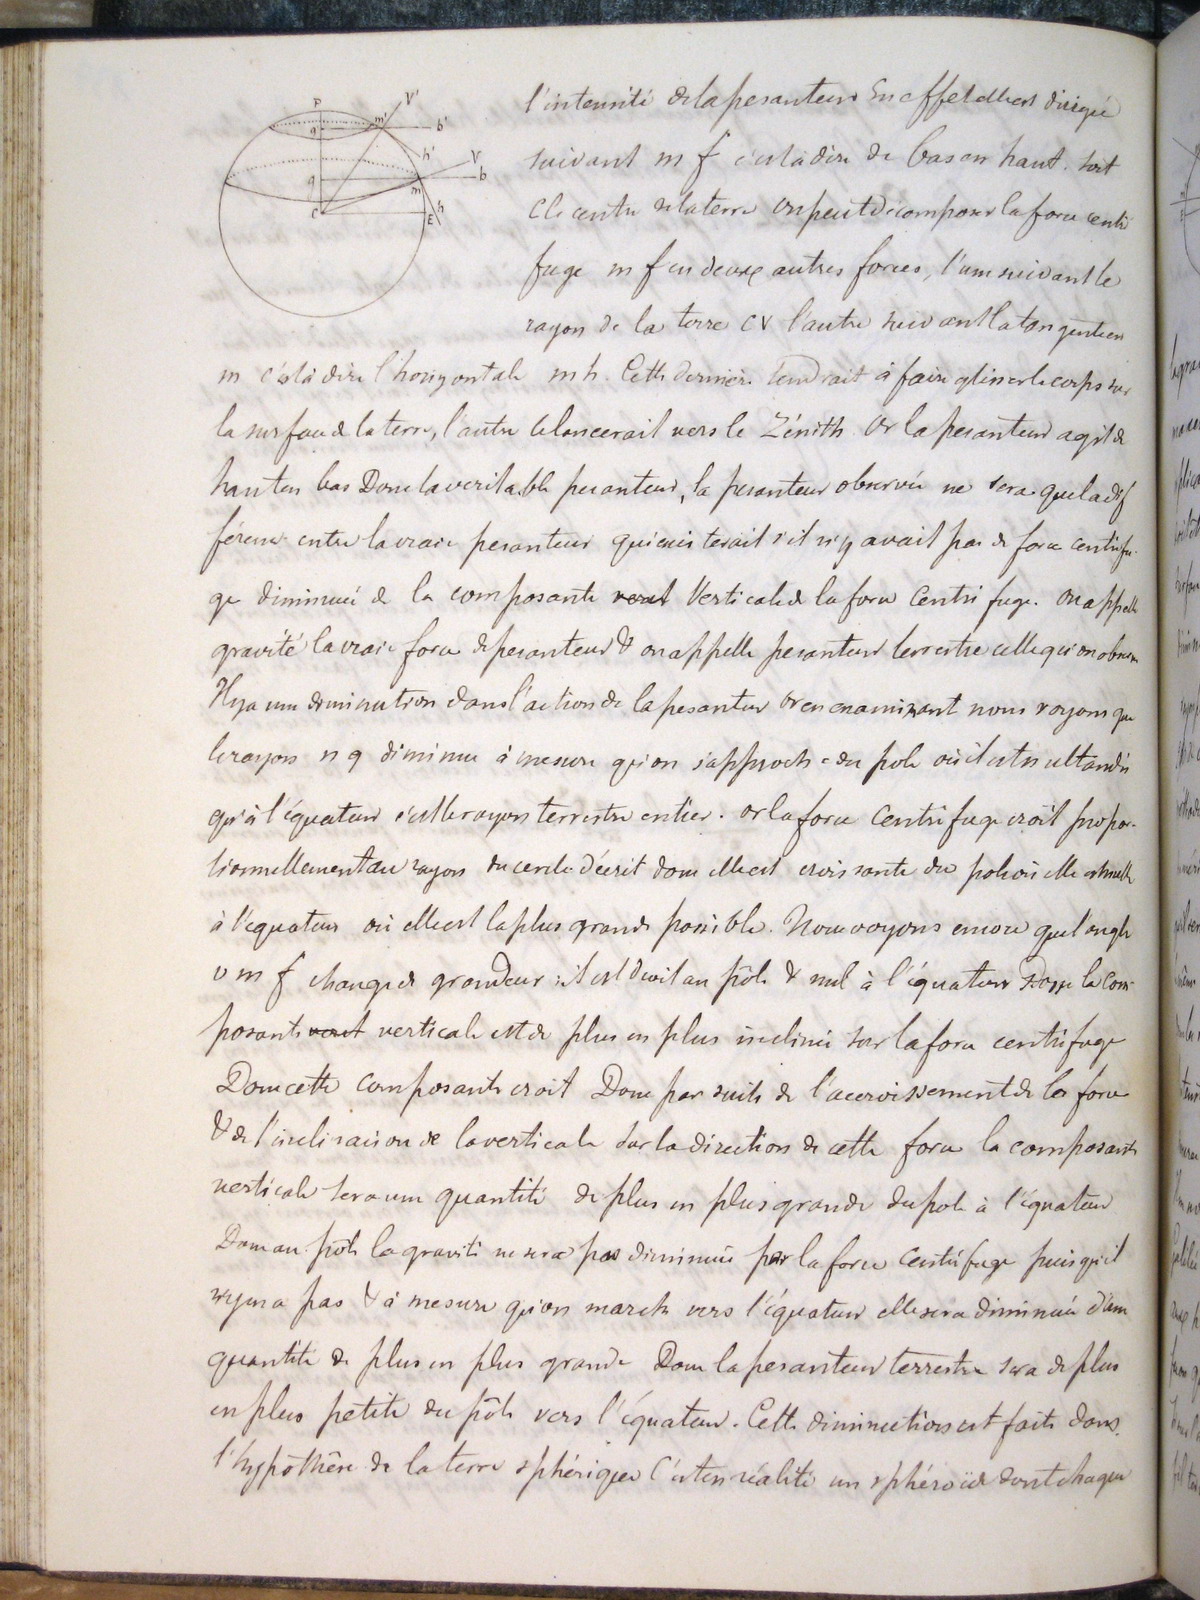 P V'
q' m' b'
h' V
q m b
C E h
l'intensité de la pesanteur En effet elle est dirigée
suivant m f c'est à dire de bas en haut. Soit
C le centre de la terre on peut décomposer la force centri
fuge m f en deux autres forces, l'une suivant le
rayon de la terre CV l'autre suivant la tangente en
m c'est à dire l'horizontale mh. Cette dernière tendrait à faire glisser le corps sur
la surface de la terre, l'autre le lancerait vers le Zénith. Or la pesanteur agit de
haut en bas Donc la veritable pesanteur, la pesanteur observée ne sera que la dif
férence entre la vraie pesanteur qui existerait s'il n'y avait pas de force centrifu-
ge diminuée de la composante Verticale de la force Centrifuge. On appelle
gravité la vraie force de pesanteur & on appelle pesanteur terrestre celle qu'on observe
Il y a une diminution dans l'action de la pesanteur Or en examinant nous voyons que
le rayon n q diminue à mesure qu'on s'approche du pole où il est nul tandis
qu'à l'équateur c'est le rayon terrestre entier. Or la force Centrifuge croît propor-
tionnellement au rayon du cercle décrit donc elle est croissante du pole où elle est nulle
à l'équateur où elle est la plus grande possible. Nous voyons encore que l'angle
v m f change de grandeur : il est droit au pôle & nul à l'équateur Donc la com
posante verticale est de plus en plus inclinée sur la force centrifuge
Donc cette composante croit Donc par suite de l'accroissement de la force
& de l'inclinaison de la verticale sur la direction de cette force la composante
verticale sera une quantité de plus en plus grande du pole à l'équateur
Donc au pôle la gravité ne sera pas diminuée par la force Centrifuge puisqu'il
n'y en a pas & à mesure qu'on marche vers l'équateur elle sera diminuée d'une
quantité de plus en plus grande Donc la pesanteur terrestre sera de plus
en plus petite du pôle vers l'équateur. Cette diminution est faite dans
l'hypothèse de la terre sphérique C'est en réalité un sphéroïde dont chaque